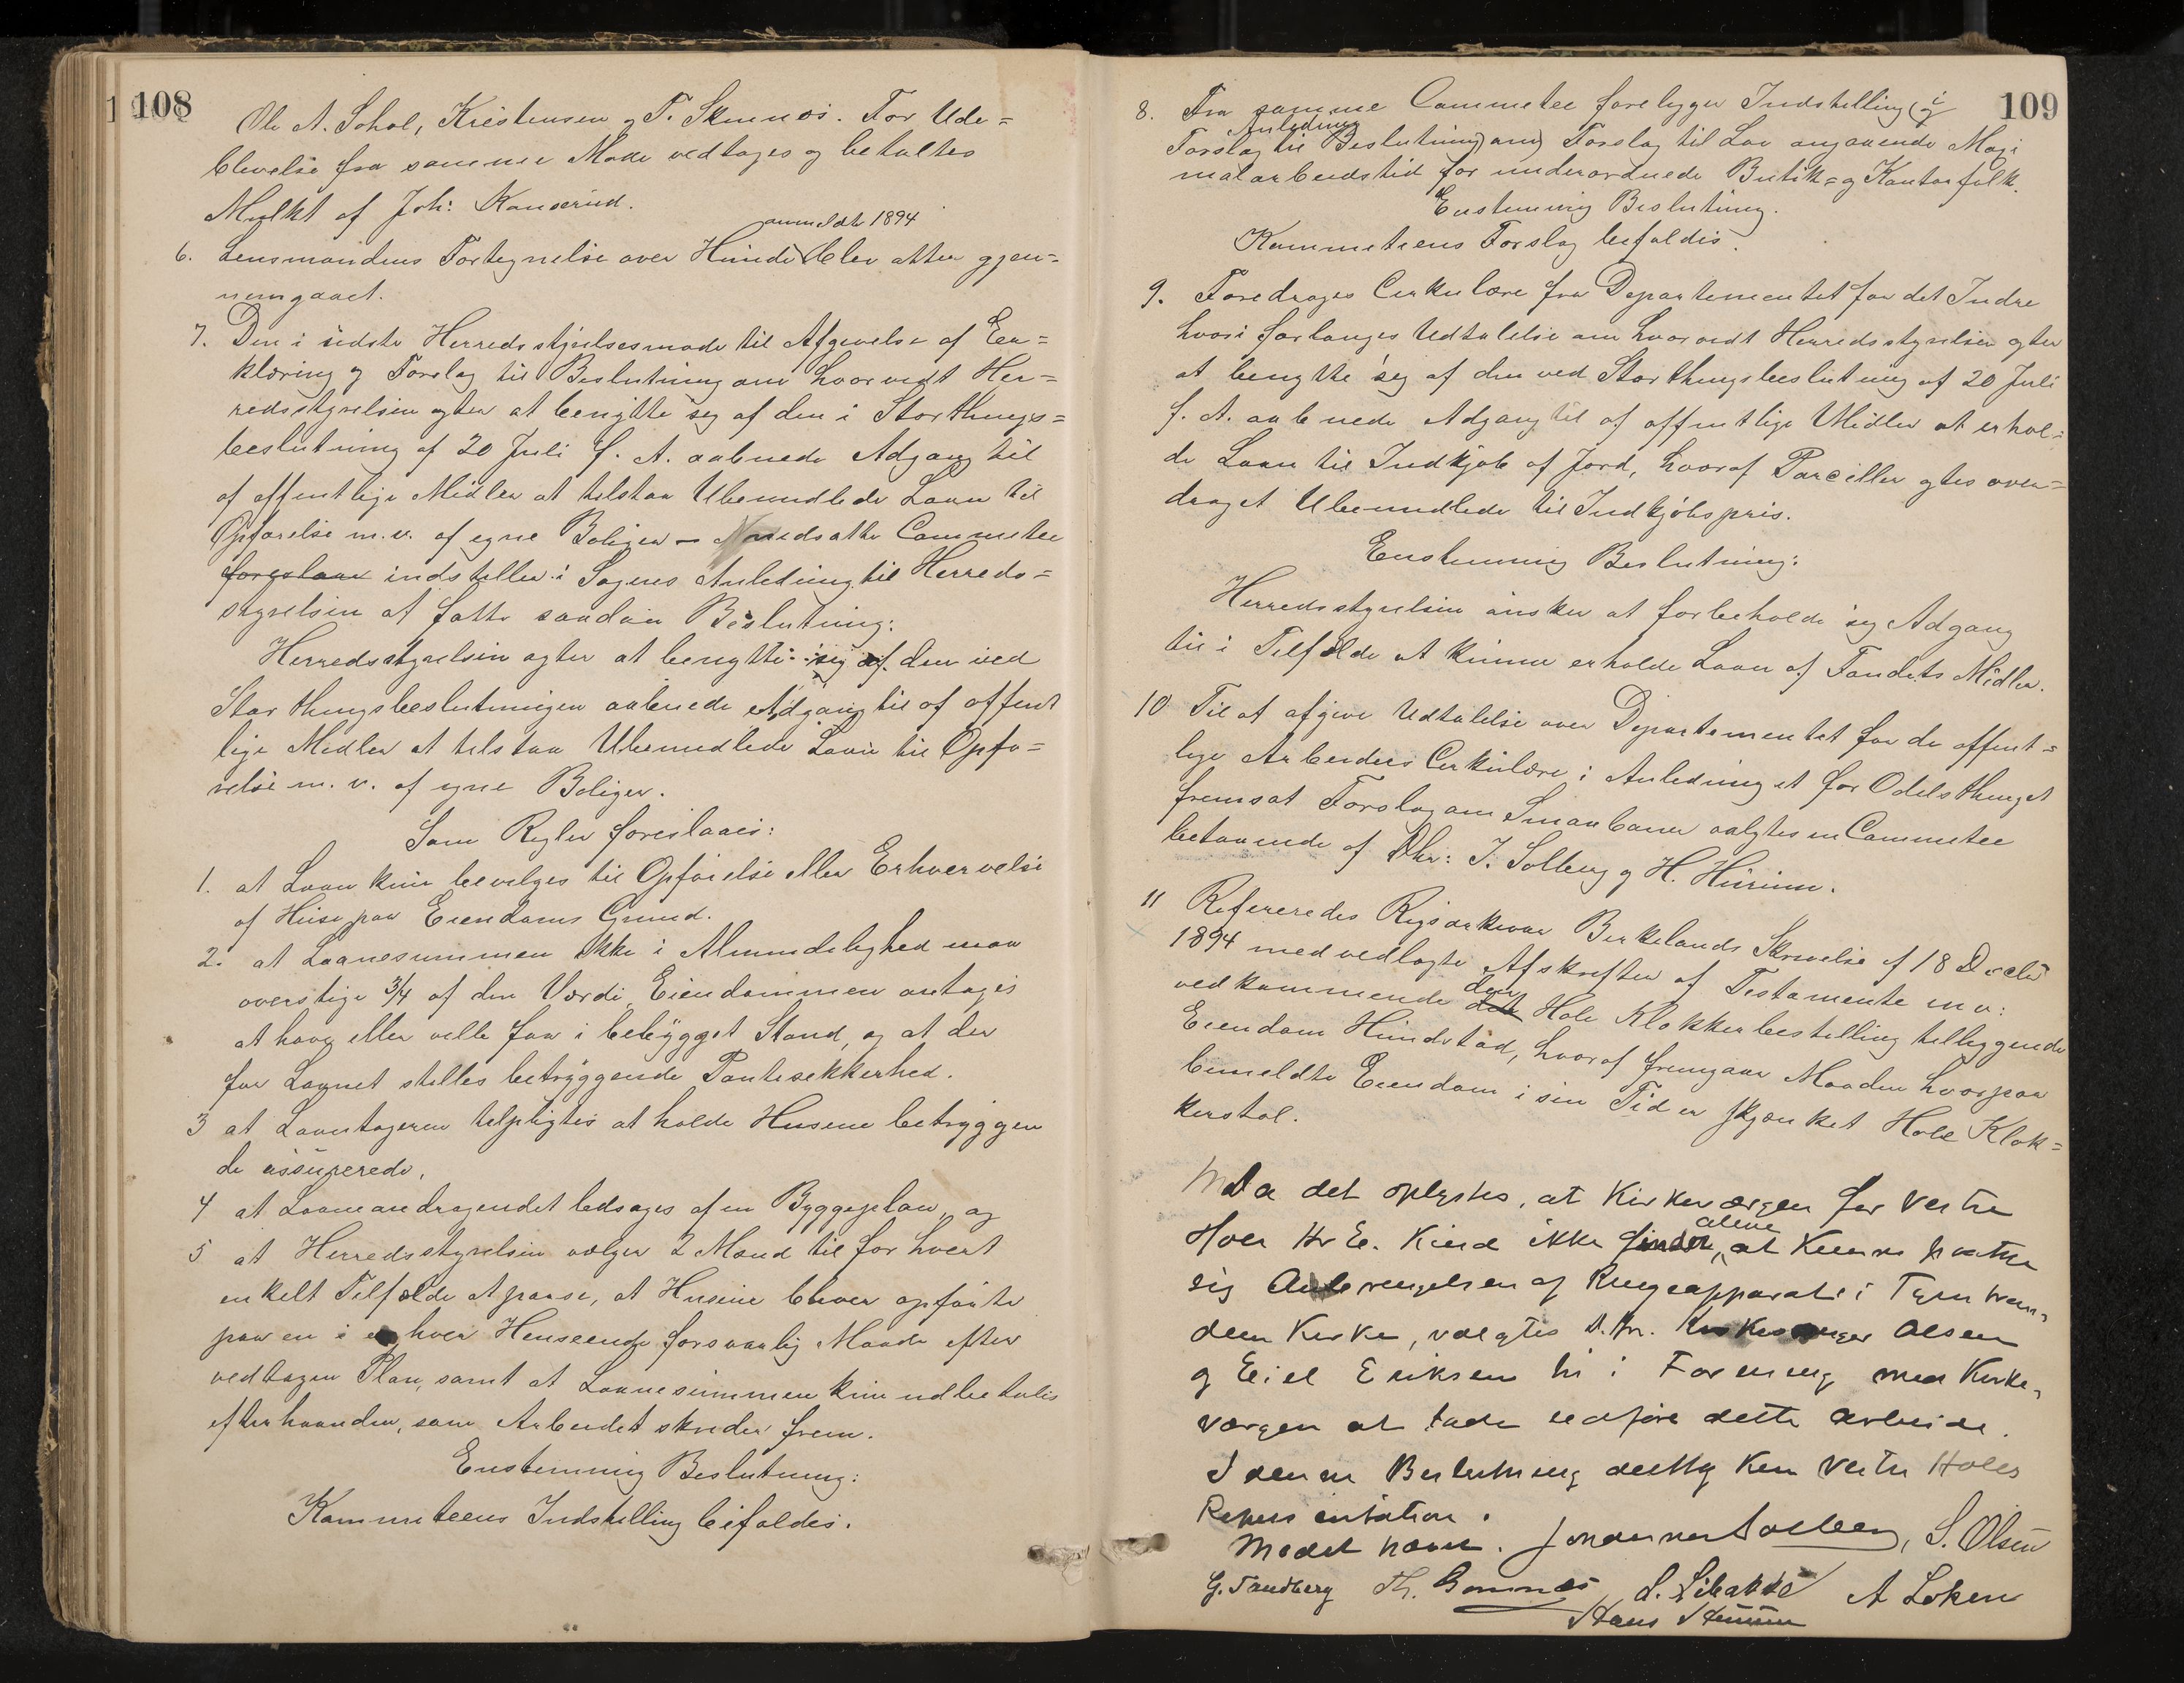 108
Ole A. Sohol, Kristensen og P. Skinnæs. For Ude=
blevelse fra samme Møde vedtages og betaltes
Mulkt af Joh: Kanserud.
anmeldte 1894
6. Lensmandens Fortegnelse over Hunde blev atter gjen=
nemgaaet.
7. Den i sidste Herredsstyrelsesmøde til Afgivelse af Er=
klæring og Forslag til Beslutning om hvorvidt Her=
redsstyrelsen agter at benytte sig af den i Storthings=
beslutning af 20 Juli f. A. aabnede Adgang til
af offentlige Midler at tilstaa Ubemidlede Laan til
Opførelse m.v. af egne Boliger – Nedsatte Committee
foreslaar indstiller i Sagens Anledning til Herreds=
styrelsen at fatte saadan Beslutning:
Herredsstyrelsen agter at benytte sig af den ved
Storthingsbeslutningen aabnede Adgang til af offent
lige Midler at tilstaa Ubemidlede Laan til Opfø=
relse m. v. af egne Boliger.
Som Regler foreslaaes:
1. at Laan kun bevilges til Opførelse eller Erhvervelse
af Huse paa Eiendoms Grund.
2. at Laanesummen ikke i Almindelighed maa
overstige 3/4 af den Værdi Eiendommen antages
at have eller ville faa i bebygget Stand, og at der
for Laanet stilles betryggende Pantesikkerhed.
3 at Laantageren tilpligtes at holde Husene betryggen
de assurerede.
4 at Laaneandragendet ledsages af en Byggeplan, og
5 at Herredsstyrelsen vælger 2 Mænd til for hvert
enkelt Tilfælde at paase, at Husene bliver opførte
paa en i enhver Henseende forsvarlig Maade efter
vedtagen Plan, samt at Laanesummen kun udbetales
efterhaanden, som Arbeidet skrider frem.
Enstemmig Beslutning:
Kommiteens Indstilling bifaldes.
109
8. Fra samme Committee foreligger Indstilling (i
Anledning
Forslag til Beslutning) om) Forslag til Lov angaaende Maxi
malarbeidstid for underordnede Butik= og Kontorfolk.
Enstemmig Beslutning.
Kommiteens Forslag bifaldes.
9. Foredroges Cirkulære fra Departementet for det Indre
hvori forlanges Udtalelse om hvorvidt Herredsstyrelsen agter
at benytte sig af den ved Storthingsbeslutning af 20 Juli
f. A. aabnede Adgang til af offentlige Midler at erhol=
de Laan til Indkjøb af Jord, hvoraf Parceller agtes over=
draget Ubemidlede til Indkjøbspris.
Enstemmig Beslutning:
Herredsstyrelsen ønsker at forbeholde sig Adgang
til i Tilfælde at kunne erholde Laan af Fondets Midler.
10 Til at afgive Udtalelse over Departementet for de offent=
lige Arbeiders Cirkulære i Anledning et for Odelsthinget
fremsat Forslag om Smaabaner valgtes en Committee
bestaaende af Dhr: J. Solberg og H. Hurum.
11 Refereredes Rigsarkivar Birkelands Skrivelse af 18 Decbr
1894 med vedlagte Afskrifter af Testamente m v:
den
vedkommende det Hole Klokkerbestilling tilliggende
Eiendom Hundstad, hvoraf fremgaar Maaden hvorpaa
bemeldte Eiendom i sin Tid er skjænket Hole Klok=
kerstol.
Da det oplystes, at Kirkeværgen for Vestre
alene
Hole Hr E. Kind ikke finder, at kunne paatage
sig Anbringelsen af Ringeapparat i Tyristran=
dens Kirke, valgtes D.hr. Kirkesanger Olsen
og Eiel Eriksen til i Forening med Kirke=
værgen at lade udføre dette Arbeide.
I denne Beslutning deltog kun Vestre Holes
Repræsentation.
Mødet hævet. Gudmund Solberg, S. Olsen
G. Sandberg Th. Bønsnæs L. Libakke A Løken
Hans Hurum